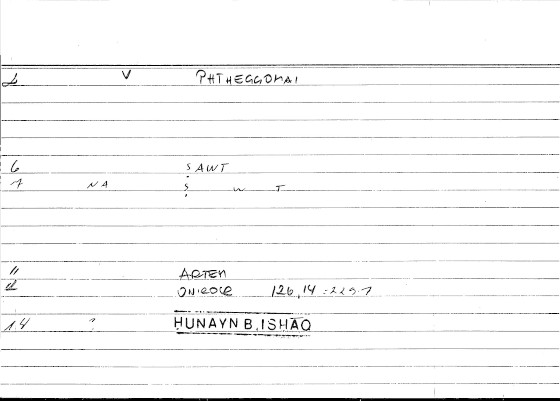 1 V PHTHEGGOMAI
6 ṢAWT
7 NA Ṣ W T
11 ARTEM
12 ONIROCR 126,14 :229.7
14 ? HUNAYN B. ISHĀQ